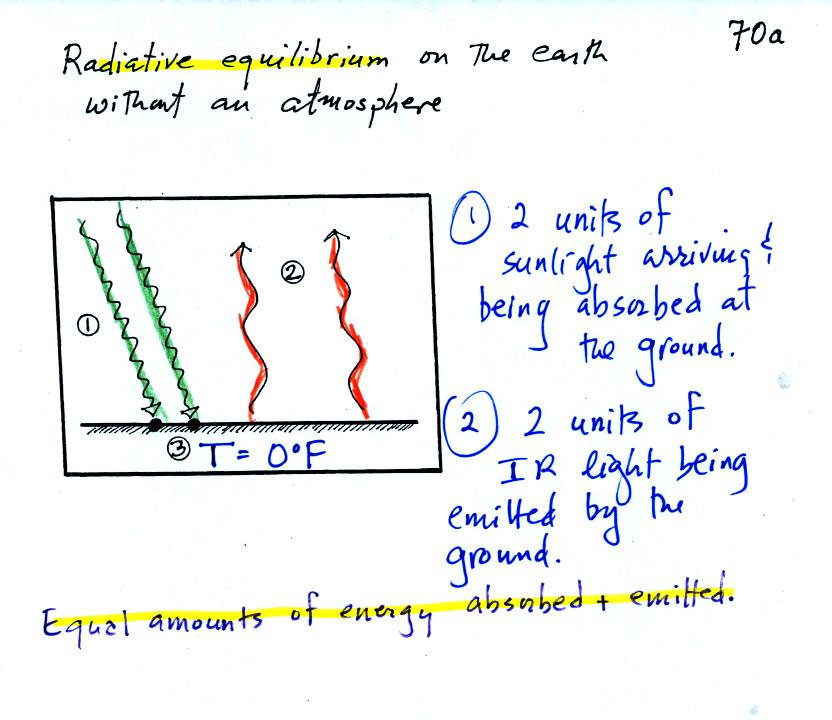 70a
Radiative equilibrium on the earth
without an atmosphere
①
②
③ T = 0°F
① 2 units of
sunlight arriving &
being absorbed at
the ground.
② 2 units of
IR light being
emitted by the
ground.
Equal amounts of energy absorbed + emitted.